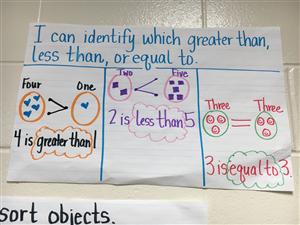 I can identify which greater than,
less than, or equal to.
Four One
>
4 is greater than 1
Two Five
<
2 is less than 5
Three Three
=
3 is equal to 3.
sort objects.